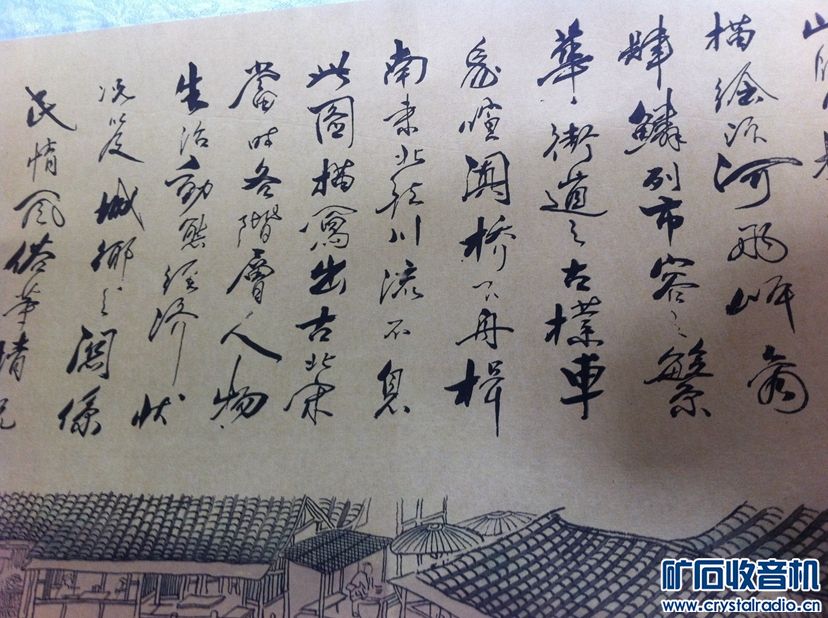 山
描绘汴河两岸商
肆鳞列市容之繁
華、街道之古樸車
馬喧闐桥下舟楫
南来北往川流不息
此图描寫出古北宋
當时各階層人物
生活動態经济状
况以及城鄉之関係
民情风俗等情况
矿石收音机
www.crystalradio.cn